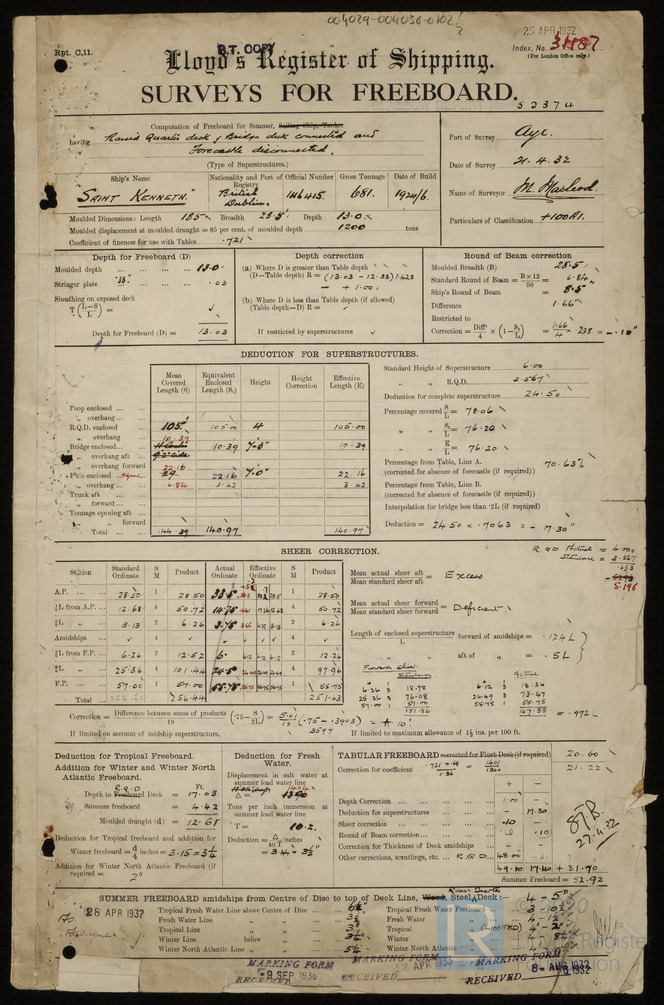 004029-004036-0102
B.T. COPY
25 APR 1932
Rpt. C.11.
Index. No.
(For London Office only.)
Lloyd's Register of Shipping.
SURVEYS FOR FREEBOARD.
52374
Computation of Freeboard for Steamer, Sailing Ship, Tanker
having Raised Quarter deck & Bridge deck connected and
Forecastle disconnected.
(Type of Superstructures.)
Port of Survey Ayr.
Date of Survey 21.4.32
Name of Surveyor M. Macleod.
Particulars of Classification +100A1.
Ship's Name
Nationality and Port of Registry
Official Number
Gross Tonnage
Date of Build
"SAINT KENNETH."
British Dublin.
146415
681.
1924/6
Moulded Dimensions: Length 185 Breadth 28.5 Depth 13.0
Moulded displacement at moulded draught = 85 per cent. of moulded depth 1200 tons
Coefficient of fineness for use with Tables .721
Depth for Freeboard (D)
Moulded depth 13.0
Stringer plate .03
Sheathing on exposed deck
T (L-S/L) =
Depth for Freeboard (D) = 13.03
Depth correction
(a) Where D is greater than Table depth
(D—Table depth) R = (13.03 - 12.33) 1.423
= + 1.00
(b) Where D is less than Table depth (if allowed)
(Table depth—D) R =
If restricted by superstructures
Round of Beam correction
Moulded Breadth (B) 28.5
Standard Round of Beam = B×12/50 = 6.84
Ship's Round of Beam = 8.5"
Difference 1.66"
Restricted to
Correction = Diff/4 × (1-S/L) = 1.66/4 × .238 = -.10"
DEDUCTION FOR SUPERSTRUCTURES.
Mean Covered Length (S)
Equivalent Enclosed Length (S₁)
Height
Height Correction
Effective Length (E)
Poop enclosed
" overhang
R.Q.D. enclosed 105' 105.00 4 105.00
" overhang
Bridge enclosed 10.39 10.39 7'.0" 10.39
" overhang aft
" overhang forward
F'cle enclosed 22.16 22.16 7'.0" 22.16
" overhang 6.84 3.42 3.42
Trunk aft
" forward
Tonnage opening aft
" " forward
Total 144.39 140.97 140.97
Standard Height of Superstructure 6.00
" " R.Q.D. 3.567
Deduction for complete superstructure 24.50
Percentage covered S/L = 78.06
" " S₁/L = 76.20
" " E/L = 76.20
Percentage from Table, Line A. 70.63%
(corrected for absence of forecastle (if required))
Percentage from Table, Line B.
(corrected for absence of forecastle (if required))
Interpolation for bridge less than ·2L (if required)
Deduction = 24.50 × .7063 = - 17.30"
SHEER CORRECTION.
R.Q.D Actual = 4.000
Standard = 3.567
.433
5.196
Station
Standard Ordinate
S M
Product
Actual Ordinate
Effective Ordinate
S M
Product
A.P. 28.50 1 28.50 28.50
⅙L from A.P. 12.68 4 50.72 14.75 4 50.72
⅓L " 3.13 2 6.26 3.75 2 6.26
Amidships 4 4
⅓L from F.P. 6.26 2 12.52 6" 2 12.26
⅙L " 25.36 4 101.44 24.5 4 97.96
F.P. 57.00 1 57.00 55.75 1 55.75
Total 256.44 251.43
Mean actual sheer aft / Mean standard sheer aft = Excess
Mean actual sheer forward / Mean standard sheer forward = Deficient
Length of enclosed superstructure / L forward of amidships = .124L
" " aft of " = .5L
Forward sheer
Standard
Actual
6.26 3 18.78 6.12 3 18.36
25.36 3 76.08 24.49 3 73.47
57.00 1 57.00 55.75 1 55.75
151.86 147.58 = .972
Correction = Difference between sums of products / 18 (·75 - S/2L) = 5.01/18 (.75 - .3903) = + .10"
.3597
If limited on account of midship superstructure.
If limited to maximum allowance of 1½ ins. per 100 ft.
Deduction for Tropical Freeboard.
Addition for Winter and Winter North
Atlantic Freeboard.
R.Q.D Ft.
Depth to Freeboard Deck = 17.03
Summer freeboard = 4.42
Moulded draught (d) = 12.61
Deduction for Tropical freeboard and addition for
Winter freeboard = d/4 inches = 3.15 = 3¼
Addition for Winter North Atlantic Freeboard (if
required = 2"
Deduction for Fresh
Water.
Displacement in salt water at
summer load water line
Δ =
Tons per inch immersion at
summer load water line
T = 10.2.
Deduction = Δ/40T inches
= 3.44 = 3½"
TABULAR FREEBOARD corrected for Flush Deck (if required) 20.60
Correction for coefficient .721+.68/1.36 = 1401/1360 21.22
+ -
Depth Correction 1.00 -
Deduction for superstructures - 17.30
Sheer correction .10 -
Round of Beam correction .10
Correction for Thickness of Deck amidships
Other corrections, scantlings, etc. R.Q.D. 48.00
49.10 17.40 + 31.70
Summer Freeboard = 52.92
27.4.32
SUMMER FREEBOARD amidships from Centre of Disc to top of Deck Line, Wood, Steel, Deck:— 4 - 5"
28 APR 1932
Tropical Fresh Water Line above Centre of Disc
Fresh Water Line " " 3½
Tropical Line " " 3¼
Winter Line below " 3¼
Winter North Atlantic Line " " 5¼
Tropical Fresh Water Freeboard 3 - 10¼
Fresh Water " 4 - 1½
Tropical "
Winter "
Winter North Atlantic "
(LIMITED)
MARKING FORM
9 SEP 1936
RECEIVED
MARKING FORM
APR 1933
RECEIVED
MARKING FORM
AUG 1932
RECEIVED
LR
Lloyd's Register
Foundation